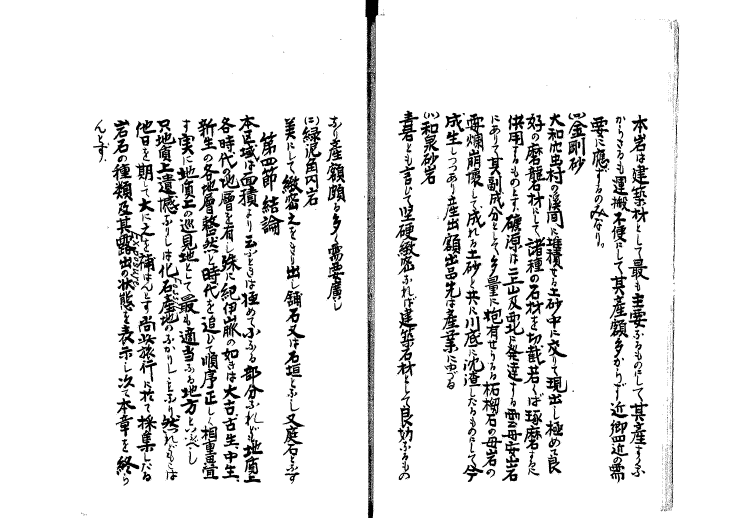 本岩は建築材として最も主要なるものにして其産する少
からざるも運搬不便にして其産額多からず近郷四近の需
要に応ずるのみなり。
金剛砂
大和穴虫村の渓間に堆積せる土砂中に交りて現出し極めて良
好の磨礲石材にして諸種の石材を切截若くば琢磨するに
供用するものとす礦源は二山及西北に発達する雲母安山岩
にありて其副成分として多量に抱有せりるる柘榴石の母岩の
霉爛崩壊して成れる土砂と共に川底に沈澱したるものにして今
成生しつつあり産出額出品先は産業に出づる
(ハ)和泉砂岩
青石とも言じて堅硬緻密なれば建築石材として良効なるもの
なり産額頗る多く需要廣し
(ニ)緑泥角閃岩
美にして緻密之をきり出し舗石又は石垣となし又庭石となす
第四節 結論
本区域は面積より云ふときは極めて小なる部分なれども地質上
各時代の地層を有し殊に紀伊山脈の如きは太古古生、中生、
新生の各地層整然と時代を追ひ順序正しく相重畳
す実に地質上の巡見地として最も適当なる地方と云べし
只地質上遺憾なりしは化石産地のなかりしことなり然れどもこは
他日を期して大に之を補はんとす尚本旅行に於て採集したる
岩石の種類及其露出の状態を表示し次で本章を終ら
んとす。